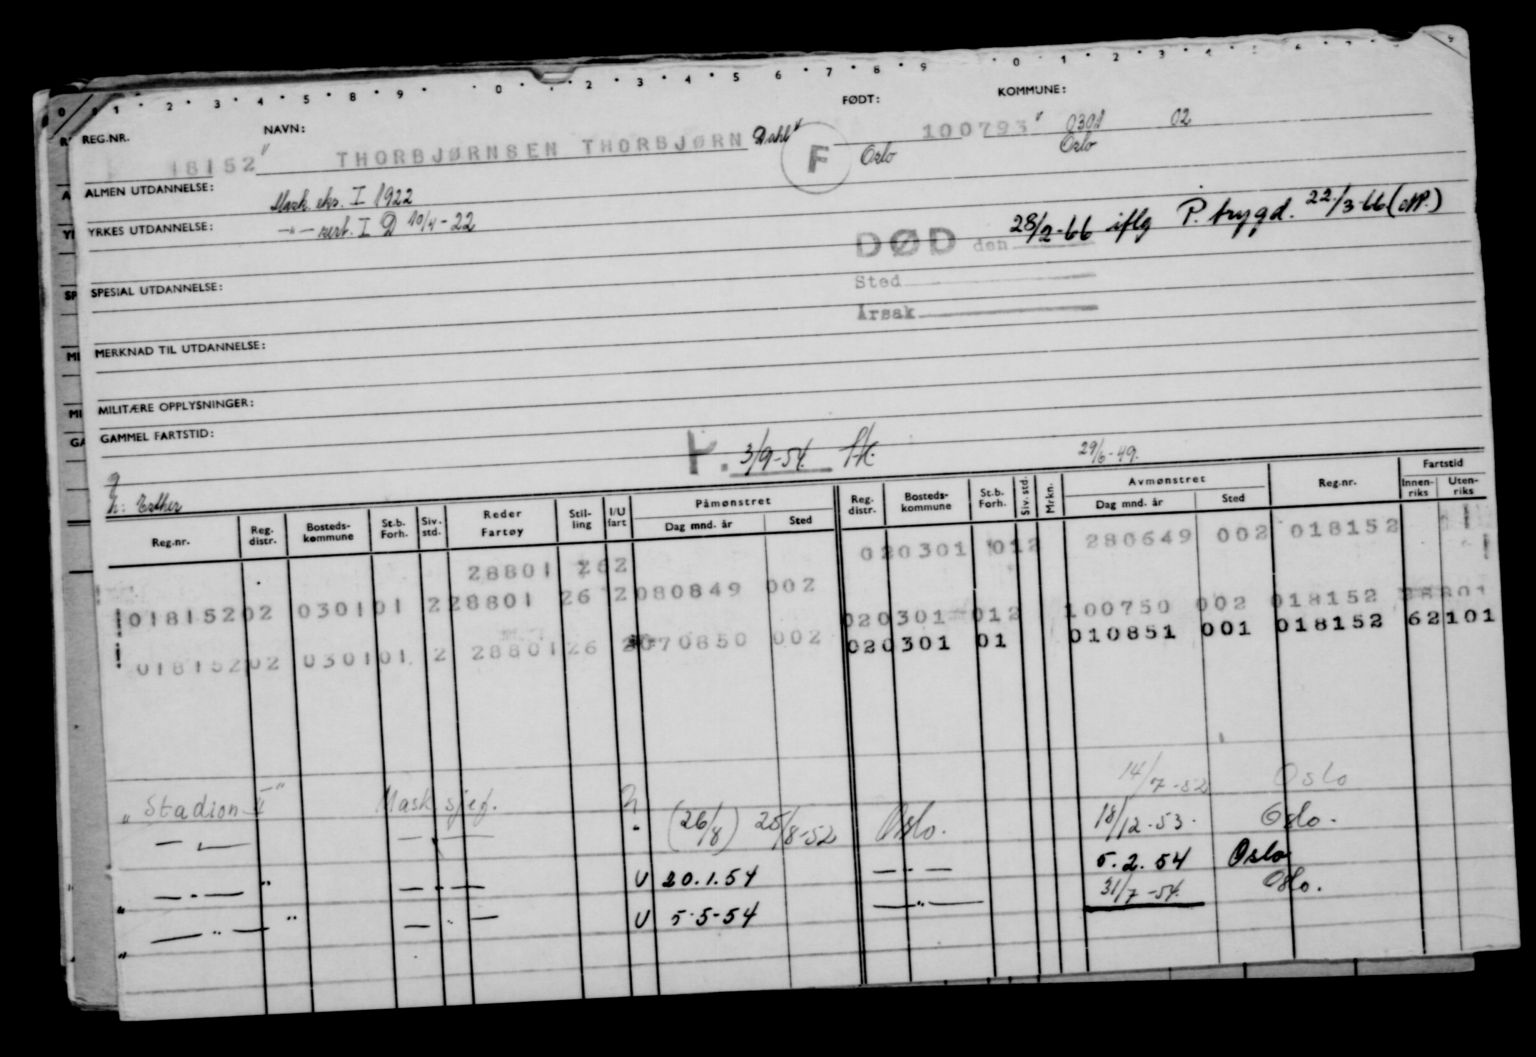 0 1 2 3 4 5 8 9 0 2 3 4 5 6 7 8 9 0 1 2 3 4 5 6 7 8 9
REG.NR. NAVN: FØDT: KOMMUNE:
18152 THORBJØRNSEN THORBJØRN Dahl F Oslo 100793 0301 Oslo 02
ALMEN UTDANNELSE: Mask. eks. I 1922
YRKES UTDANNELSE: -"- sert. I D 10/4-22
DØD den 28/2-66 iflg P. trygd. 22/3-66 (NP.)
SPESIAL UTDANNELSE: Sted
Årsak
MERKNAD TIL UTDANNELSE:
MILITÆRE OPPLYSNINGER:
GAMMEL FARTSTID:
P. 3/9-54 29/6-49.
g
h: Esther
Reg.nr. Reg. distr. Bosteds- kommune St.b. Forh. Siv. std. Reder Fartøy Stil- ling I/U fart Påmønstret Dag mnd. år Sted Reg. distr. Bosteds- kommune St.b. Forh. Siv. std. Mrkn. Avmønstret Dag mnd. år Sted Reg.nr. Fartstid Innen- riks Uten- riks
28801 262 020301 012 280649 002 018152
018152 02 0301 01 2 28801 26 2 080849 002 020301 012 100750 002 018152
018152 02 0301 01 2 28801 26 070850 002 020301 01 010851 001 018152 62101
14/7-52 Oslo
"Stadion II" Mask sjef. (26/8) 25/8-52 Oslo. 18/12-53. Oslo.
-"- -"- U 20.1.54 -"- 5.2.54 Oslo
-"- -"- U 5-5-54 -"- 31/7-54. Oslo.